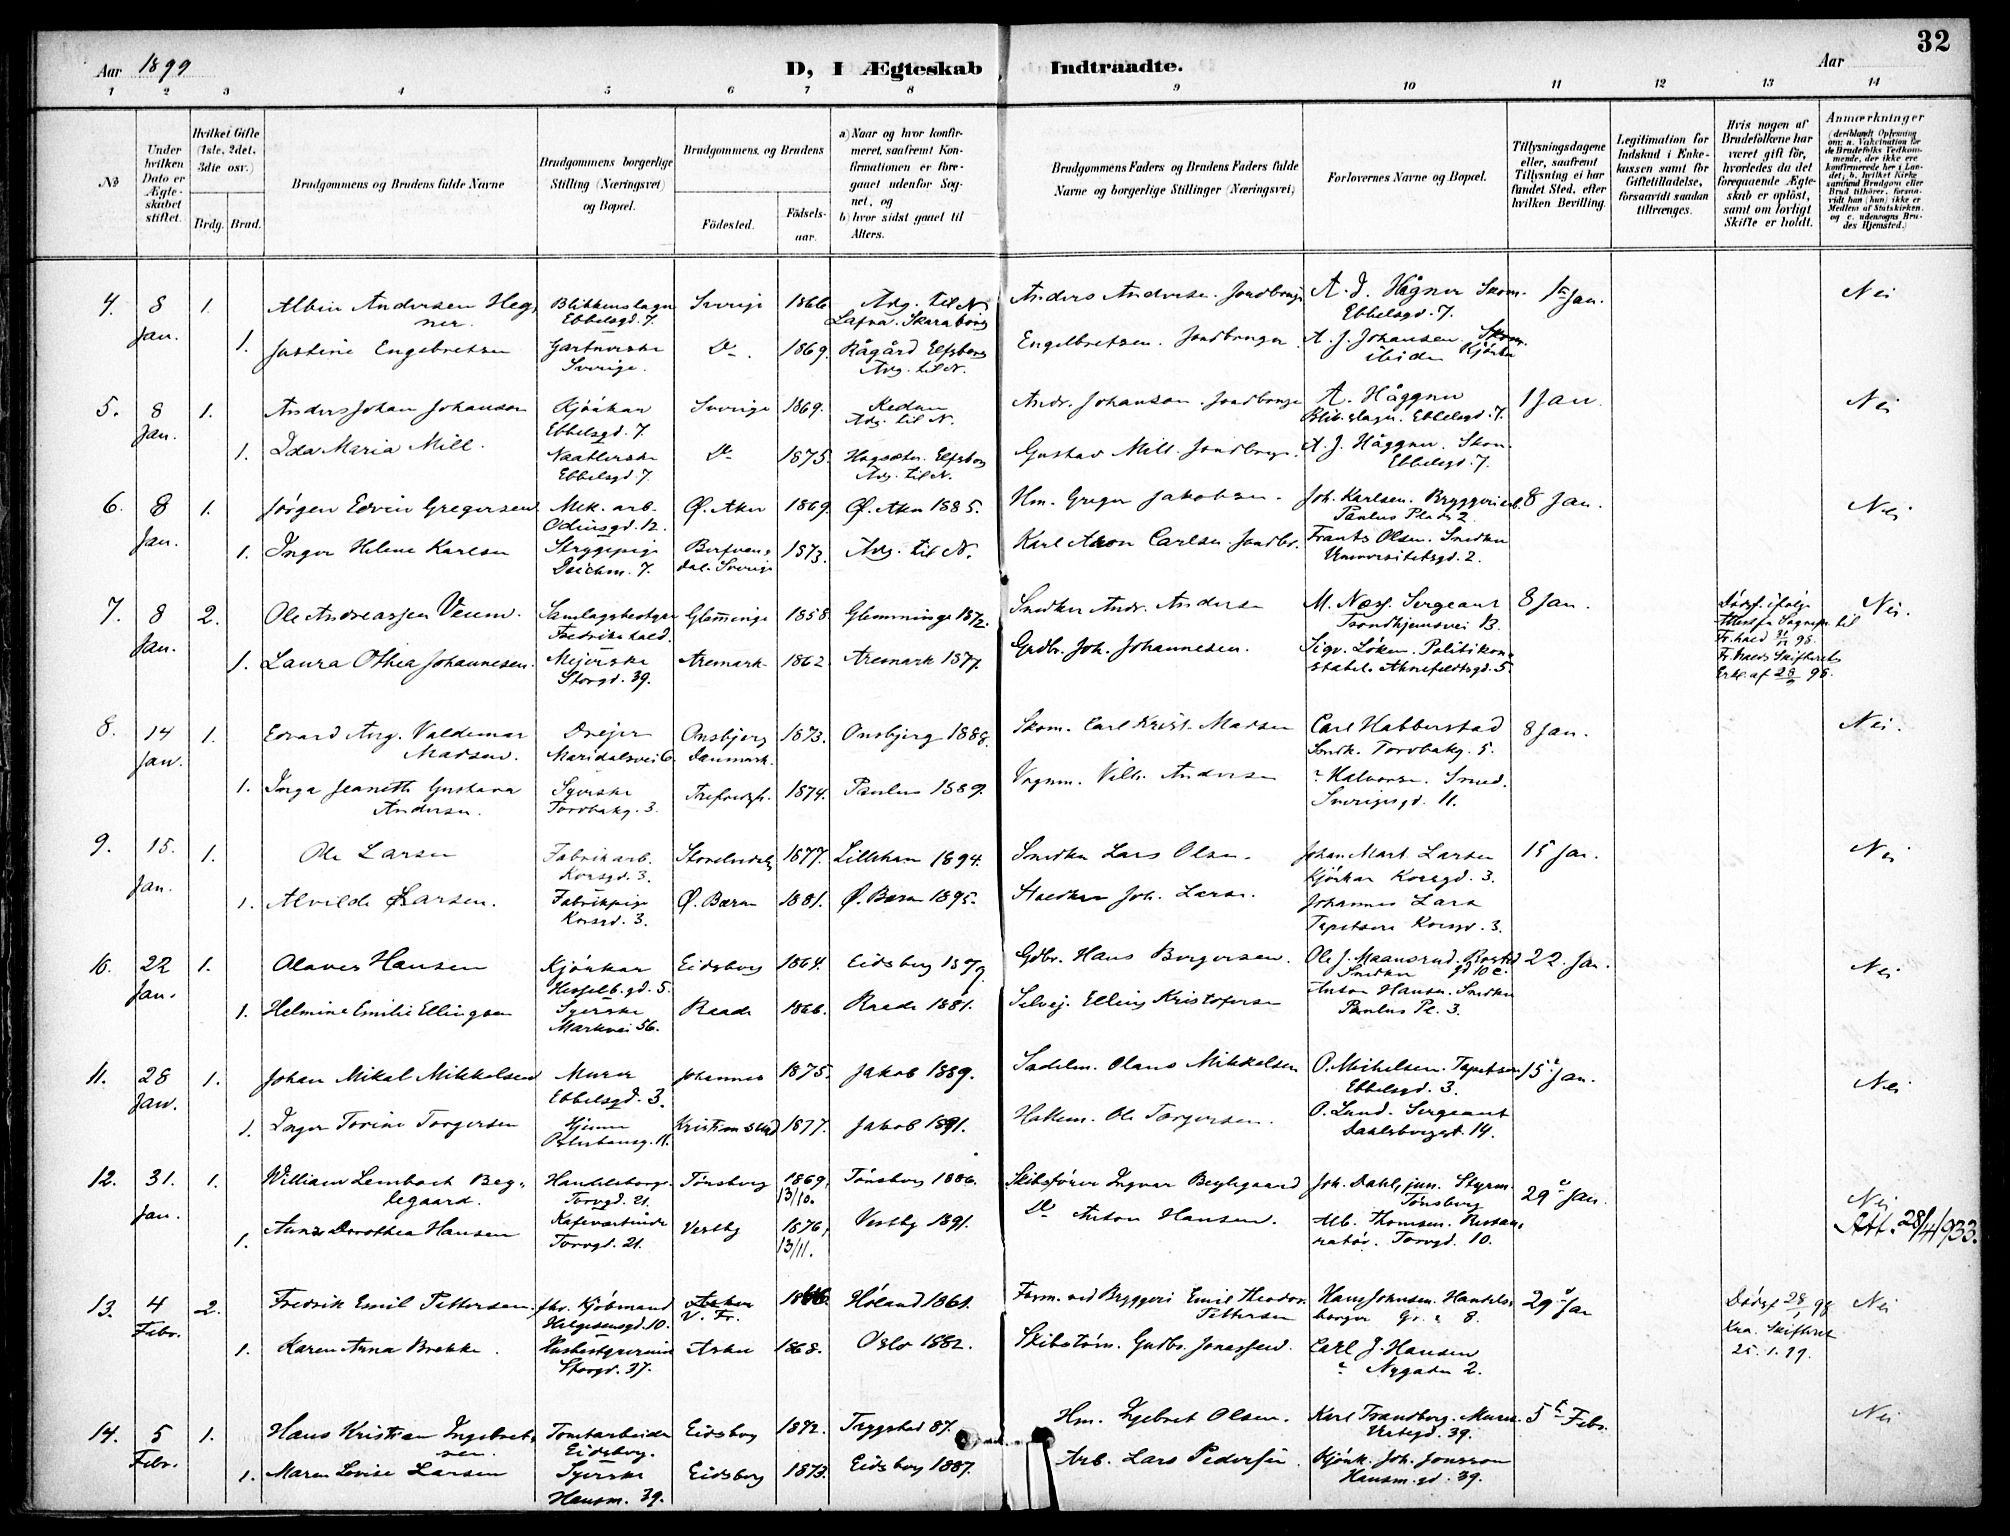 32
Aar 1899
D, I Ægteskab Indtraadte.
Aar
1 2 3 4 5 6 7 8 9 10 11 12 13 14
No
Under hvilken Dato er Ægteskabet stiftet.
Hvilket Gifte (1ste, 2det, 3die osv.)
Brdg. Brud.
Brudgommens og Brudens fulde Navne
Brudgommens borgerlige Stilling (Næringsvei) og Bopæl.
Brudgommens og Brudens
Födested.
Födselsaar.
a) Naar og hvor konfirmeret, saafremt Konfirmationen er foregaaet udenfor Sognet, og
b) hvor sidst gaaet til Alters.
Brudgommens Faders og Brudens Faders fulde Navne og borgerlige Stillinger (Næringsvei)
Forlovernes Navne og Bopæl.
Tillysningsdagene eller, saafremt Tillysning ei har fundet Sted, efter hvilken Bevilling.
Legitimation for Indskud i Enkekassen samt for Giftetilladelse, forsaavidt saadan tiltrænges.
Hvis nogen af Brudefolkene har været gift för, hvorledes da det foregaaende Ægteskab er oplöst, samt om lovligt Skifte er holdt.
Anmærkninger
(deriblandt Oplysning om: a. Vakcination for de Brudefolks Vedkommende, der ikke ere konfirmerede her i Landet, b. hvilket Kirkesamfund Brudgom eller Brud tilhörer, forsaavidt han (hun) ikke er Medlem af Statskirken, og c. udensogns Brudes Hjemsted.)
4. 8 Jan. 1. Albin Andersen Hegner. Blikkenslager Ebbelsgd. 7. Sverige 1866 Adg. til N. Anders Andersen. Jordbruger A. J. Hågner Skom. Ebbelsgd. 7. 1ste Jan. Nei
1. Justine Engebretsen Gartnerske Sverige. Do. 1869. Rågård Elfsborg Adg. til N. Engelbretsen. Jordbruger A. J. Johansen. Skom. ibiden
5. 8 Jan. 1. Anders Johan Johanson Kjörkar Ebbelsgd. 7 Sverige 1869. Redum Adg. til N. Andr. Johanson. Jordbruger A. Häggner Ebbelsgd. 7. 1 Jan. Nei
1. Ida Maria Mill. Naatlerske Ebbelsgd. 7 Do 1875. Elfsborg Adg. til N. Gustav Mill. Jordbruger. A. J. Häggner. Skom. Ebbelsgd. 7.
6. 8 Jan. 1. Jørgen Edvin Gregersen Mek. arb. Odinsgd. 12. Ø. Aker 1869. Ø. Aker 1885. Hm. Greger Jakobsen. Joh. Karlsen. Bryggeriarb. Paulus Plads 2 8 Jan. Nei
1. Inger Helene Karlsen Strygepige Deichm. 7. Sverige 1873. Adg. til N. Karl Aaron Carlsen. Jordbr. Frants Olsen. Snedker Universitetsgd. 2.
7. 8 Jan. 2. Ole Andreassen Veum. Samlagsbestyrer Fredrikshald. Glemminge 1858. Glemminge 1872. Snedker Andr. Andersen M. Næss. Sergeant Trondhjemsvei 13. 8 Jan. Nei.
1. Laura Othea Johannesen. Meierske Storgd. 39. Aremark 1862 Aremark 1877. Grdbr. Joh. Johannesen. Sigv. Løken. Politikonstabel. Aknefeldtsgd. 5.
8. 14 Jan. 1. Edvard Aug. Valdemar Madsen. Drejer Maridalsvei 6. Onsbjerg Danmark. 1873. Onsbjerg 1888. Skom. Carl Krist. Madsen Carl Habberstad Snedk. Torvbakg. 5. 8 Jan. Nei.
1. Inga Jeanette Gustava Andersen. Syerske Torvbakg. 3. Trefoldigh. 1874. Paulus 1889. Vognm. Vilh. Andersen Halvorsen. Smed. Sverigesgd. 11.
9. 15. Jan. 1. Ole Larsen Fabrikarb. Korsgd. 3. Storelvedalen 1877. Lilleham 1894. Snedker Lars Olsen. Johan Mart. Larsen Kjörkar Korsgd. 3. 15 Jan. Nei
1. Alvilde Larsen. Fabrikpige Korsgd. 3. Ø. Bærum 1881. Ø. Bærum 1895. Joh. Larsen. Johannes Larsen Tapetserer Korsgd. 3.
10. 22 Jan. 1. Olaves Hansen Kjörkar Hesselb. gd. 5. Eidsberg 1864. Eidsberg 1879 Gdbr. Hans Borgersen. Ole J. Maansrud. Snedker 22. Jan. Nei
1. Helmine Emilie Ellingsen Syerske Markvei 56. Raade 1866. Raade 1881. Selvej. Elling Kristofersen Anton Hansen. Snedker Paulus Pl. 3.
11. 28 Jan. 1. Johan Mikal Mikkelsen Murer Ebbelsgd. 3. Johannes 1875. Jakob 1889. Sadelm. Olaus Mikkelsen O. Michelsen. Tapetserer Ebbelsgd. 3. 15 Jan. Nei
1. Inger Torine Torgersen Hjemme Kristiansund 1877. Jakob 1891. Ole Torgersen. O. Lund. Sergeant Dahlsbergst. 14.
12. 31. Jan. 1. William Lembach Beglegaard. Handelsborger. Torvgd. 21. Tønsberg 1869, 13/10. Tønsberg 1886. Skibsfører Ingvar Beglegaard Joh. Dahl, jun. Styrm. Tønsberg 29 Jan. Nei
1. Anna Dorothea Hansen Kafeværtinde Torvgd. 21. Vestby 1876, 13/11. Vestby 1891. Do Anton Hansen. Alb. Thomsen. Restauratør. Torvgd. 10. Att. 28/4 1933.
13. 4 Febr. 2. Fredrik Emil Pettersen. fhv. Kjöbmand Helgesensgd. 10. V. Fr. 1866. Høland 1861. Form. ved Bryggeri Emil Theodor Pettersen Hans Johnsen. Handelsborger 8. 29 Jan Nei
1. Karen Anna Brekke. Husbestyrerinde Storgd. 37. Asker 1868. Oslo 1882. Skibstøm. Gudbr. Jonassen. Carl J. Hansen Nygaden 2.
14. 5 Febr. 1. Hans Kristian Ingebretsen. Tomtarbeider Eidsberg. Eidsberg 1872. Trygstad 87. Hm. Ingebret Olsen. Karl Trandberg. Murer Urtegd. 39. 5 Febr. Nei
1. Maren Lovise Larsen Syerske Hausm. 39. Eidsberg 1873. Eidsberg 1887. Arb. Lars Pedersen. Kjörk. Joh. Jonsson Hausm. gd. 39.